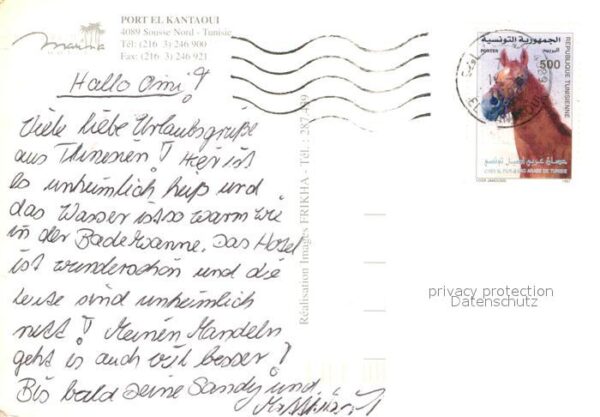 marina
PORT EL KANTAOUI
4089 Sousse Nord - Tunisie
Tél: (216 3) 246 900
Fax (216 3) 246 921
الجمهورية التونسية
POSTES
البريد
500
REPUBLIQUE TUNISIENNE
حصان عربي أصيل تونسي
Hallo Omi!
Viele liebe Urlaubsgrüße
aus Thunesien! Hier ist
es unheimlich heiß und
das Wasser ist so warm wie
in der Badewanne. Das Hotel
ist wunderschön und die
Leute sind unheimlich
nett! Meinen Mandeln
geht es auch viel besser!
Bis bald Deine Sandy und
Réalisation Images FRIKHA - Tél.: 287
privacy protection
Datenschutz